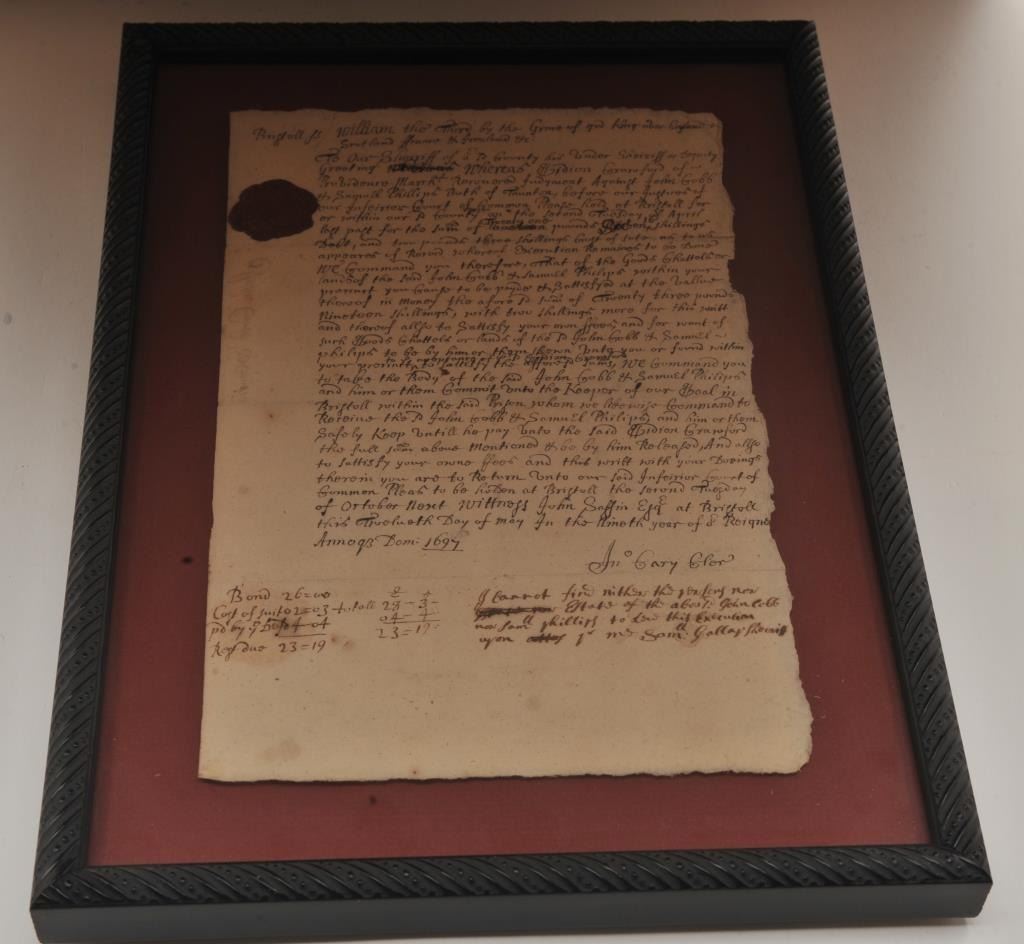 Bristoll ss William the Third by the Grace of god King over England
Scotland ffrance & Ireland &c
To Our Sheriff of sd County his Under Sherriff or Deputy
Greeting Whereas Gidion Crawford of
Providence March Recovered Judgment Against John Cobb
& Samuell Phillips both of Taunton before our Justices of
our Inferior Court of Common Please held at Bristoll for
or within our sd County on the second Tuesday of April
last past for the sum of Twenty one pounds shillings
Debt, and two pounds three shillings Cost of sute as to us
appeares of Record whereof Execution Remaines to be Done
WE Command you therefore, That of the Goods Chattols or
lands of the said John Cobb & Samuel Philips within your
precinct you Cause to be payde & Sattisfyed at the Value
thereof in money the afore sd sum of Twenty three pounds
Nineteen shillings, with two shillings more for this writt
and thereof allso to Sattisfy your own ffees and for want of
such Goods Chattols or lands of the sd John Cobb & Samuel
philips to be by him or them shewn unto you or found within
your precinct to sattisfy the afore sd sums, WE Command you
to take the Body of the said John Cobb & Samuel Philips
and him or them Commit unto the Keeper of our Goal in
Bristoll within the said Prison whom we likewise Command to
Receive the sd John Cobb & Samuel Philips and him or them
Safely Keep Untill he pay unto the said Gidion Crawford
the full sum above Mentioned & be by him Released, And allso
to sattisfy your owne ffees and this writt with your Doeings
therein you are to Return Unto our said Inferior Court of
Common Pleas to be holden at Bristoll the second Tuesday
of October Next Wittness John Saffin Esqr at Bristoll
this Twelueth Day of may In the Nineth year of or Reigne
Annoqs Dom: 1697
Jno Cary Cler
Bond 26=00
Cost of suit 02=03 totall 28-3-
pd by ye 04-04 04-4
Rest due 23=19 23=19:
I Cannot find nither the persons nor
Estate of the above John Cobb
nor Samll phillips to Levi this Execution
upon pr me Saml. Gallop Sherriff